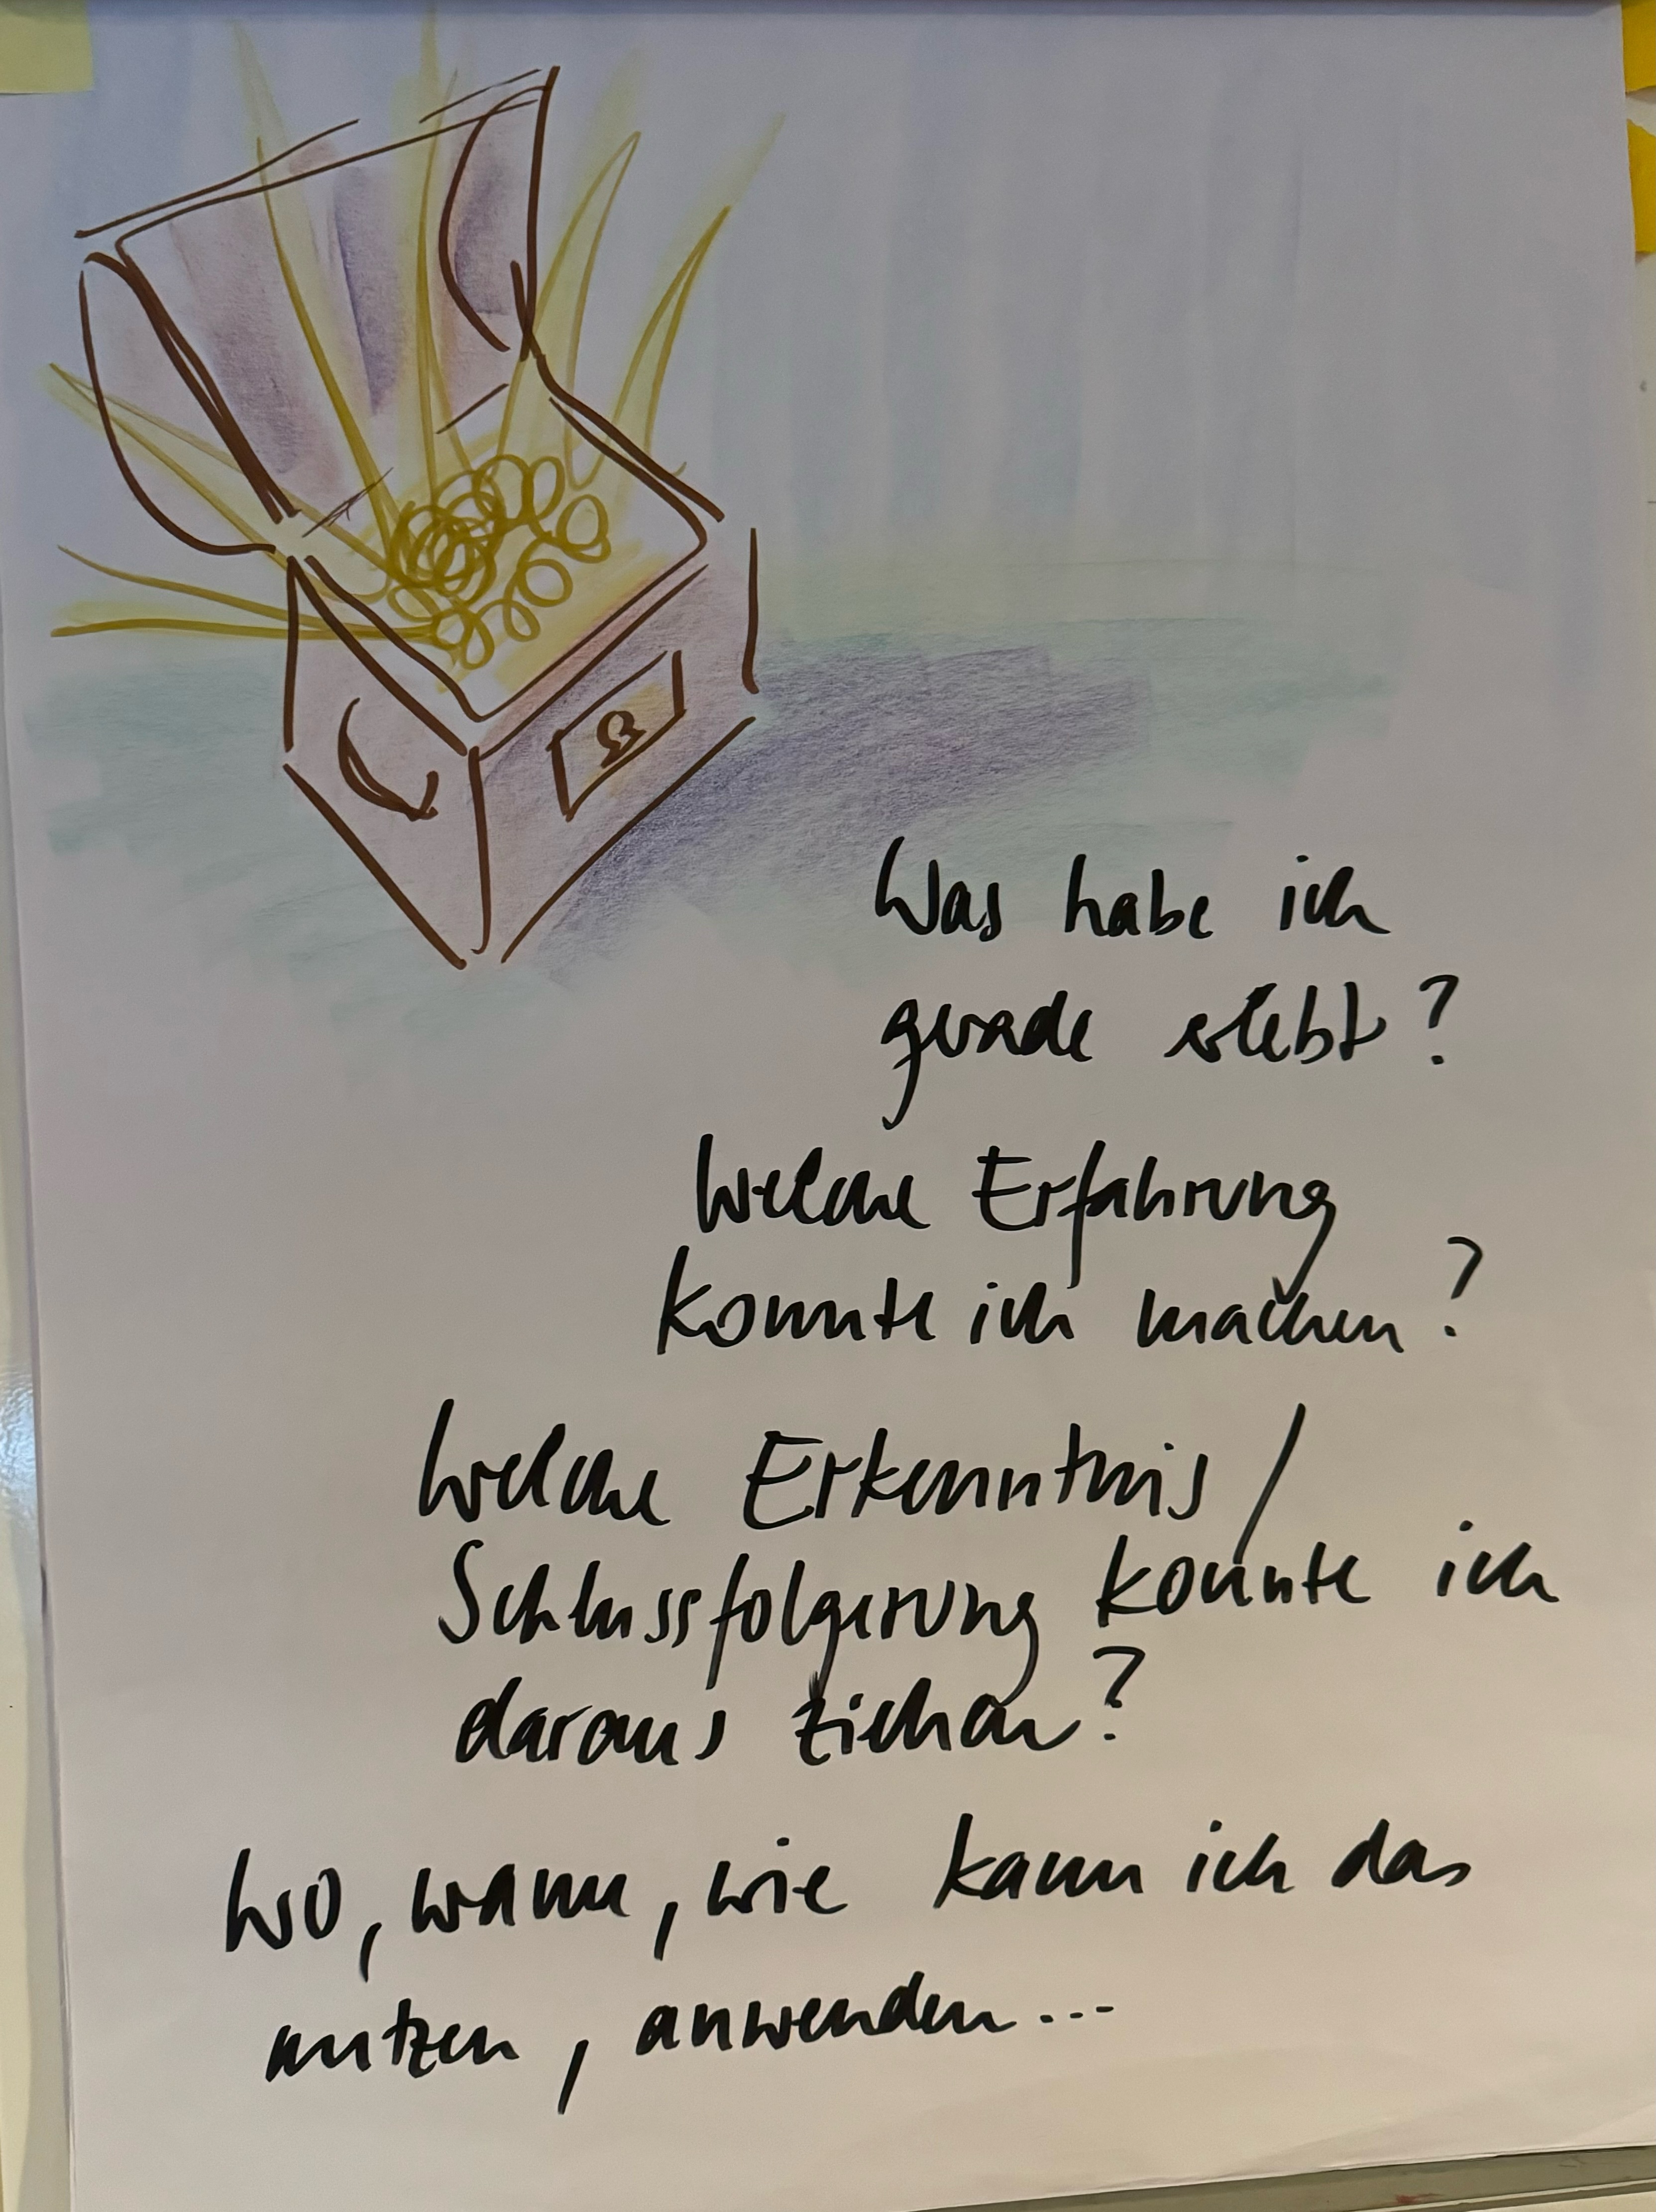 Was habe ich
gerade erlebt?
Welche Erfahrung
konnte ich machen?
Welche Erkenntnis/
Schlussfolgerung konnte ich
daraus ziehen?
Wo, wann, wie kann ich das
nutzen, anwenden...